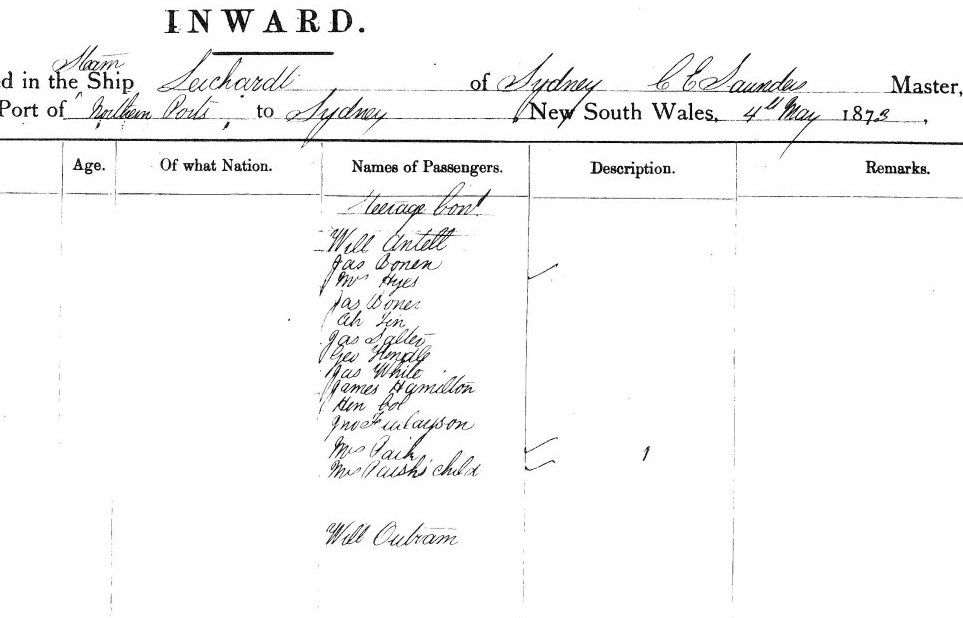 INWARD.
Steam
ed in the Ship Leichardt of Sydney C E Saunders Master,
Port of Northern Ports, to Sydney New South Wales, 4th May 1873,
Age. Of what Nation. Names of Passengers. Description. Remarks.
Steerage Cont
Will Antell
Jas
Mrs Hyes
Jas
Ah
Jas Salter
Geo
Jas White
James Hamilton
Hen
Jno Finlayson
Mrs 1
Mrs child
Will Outram